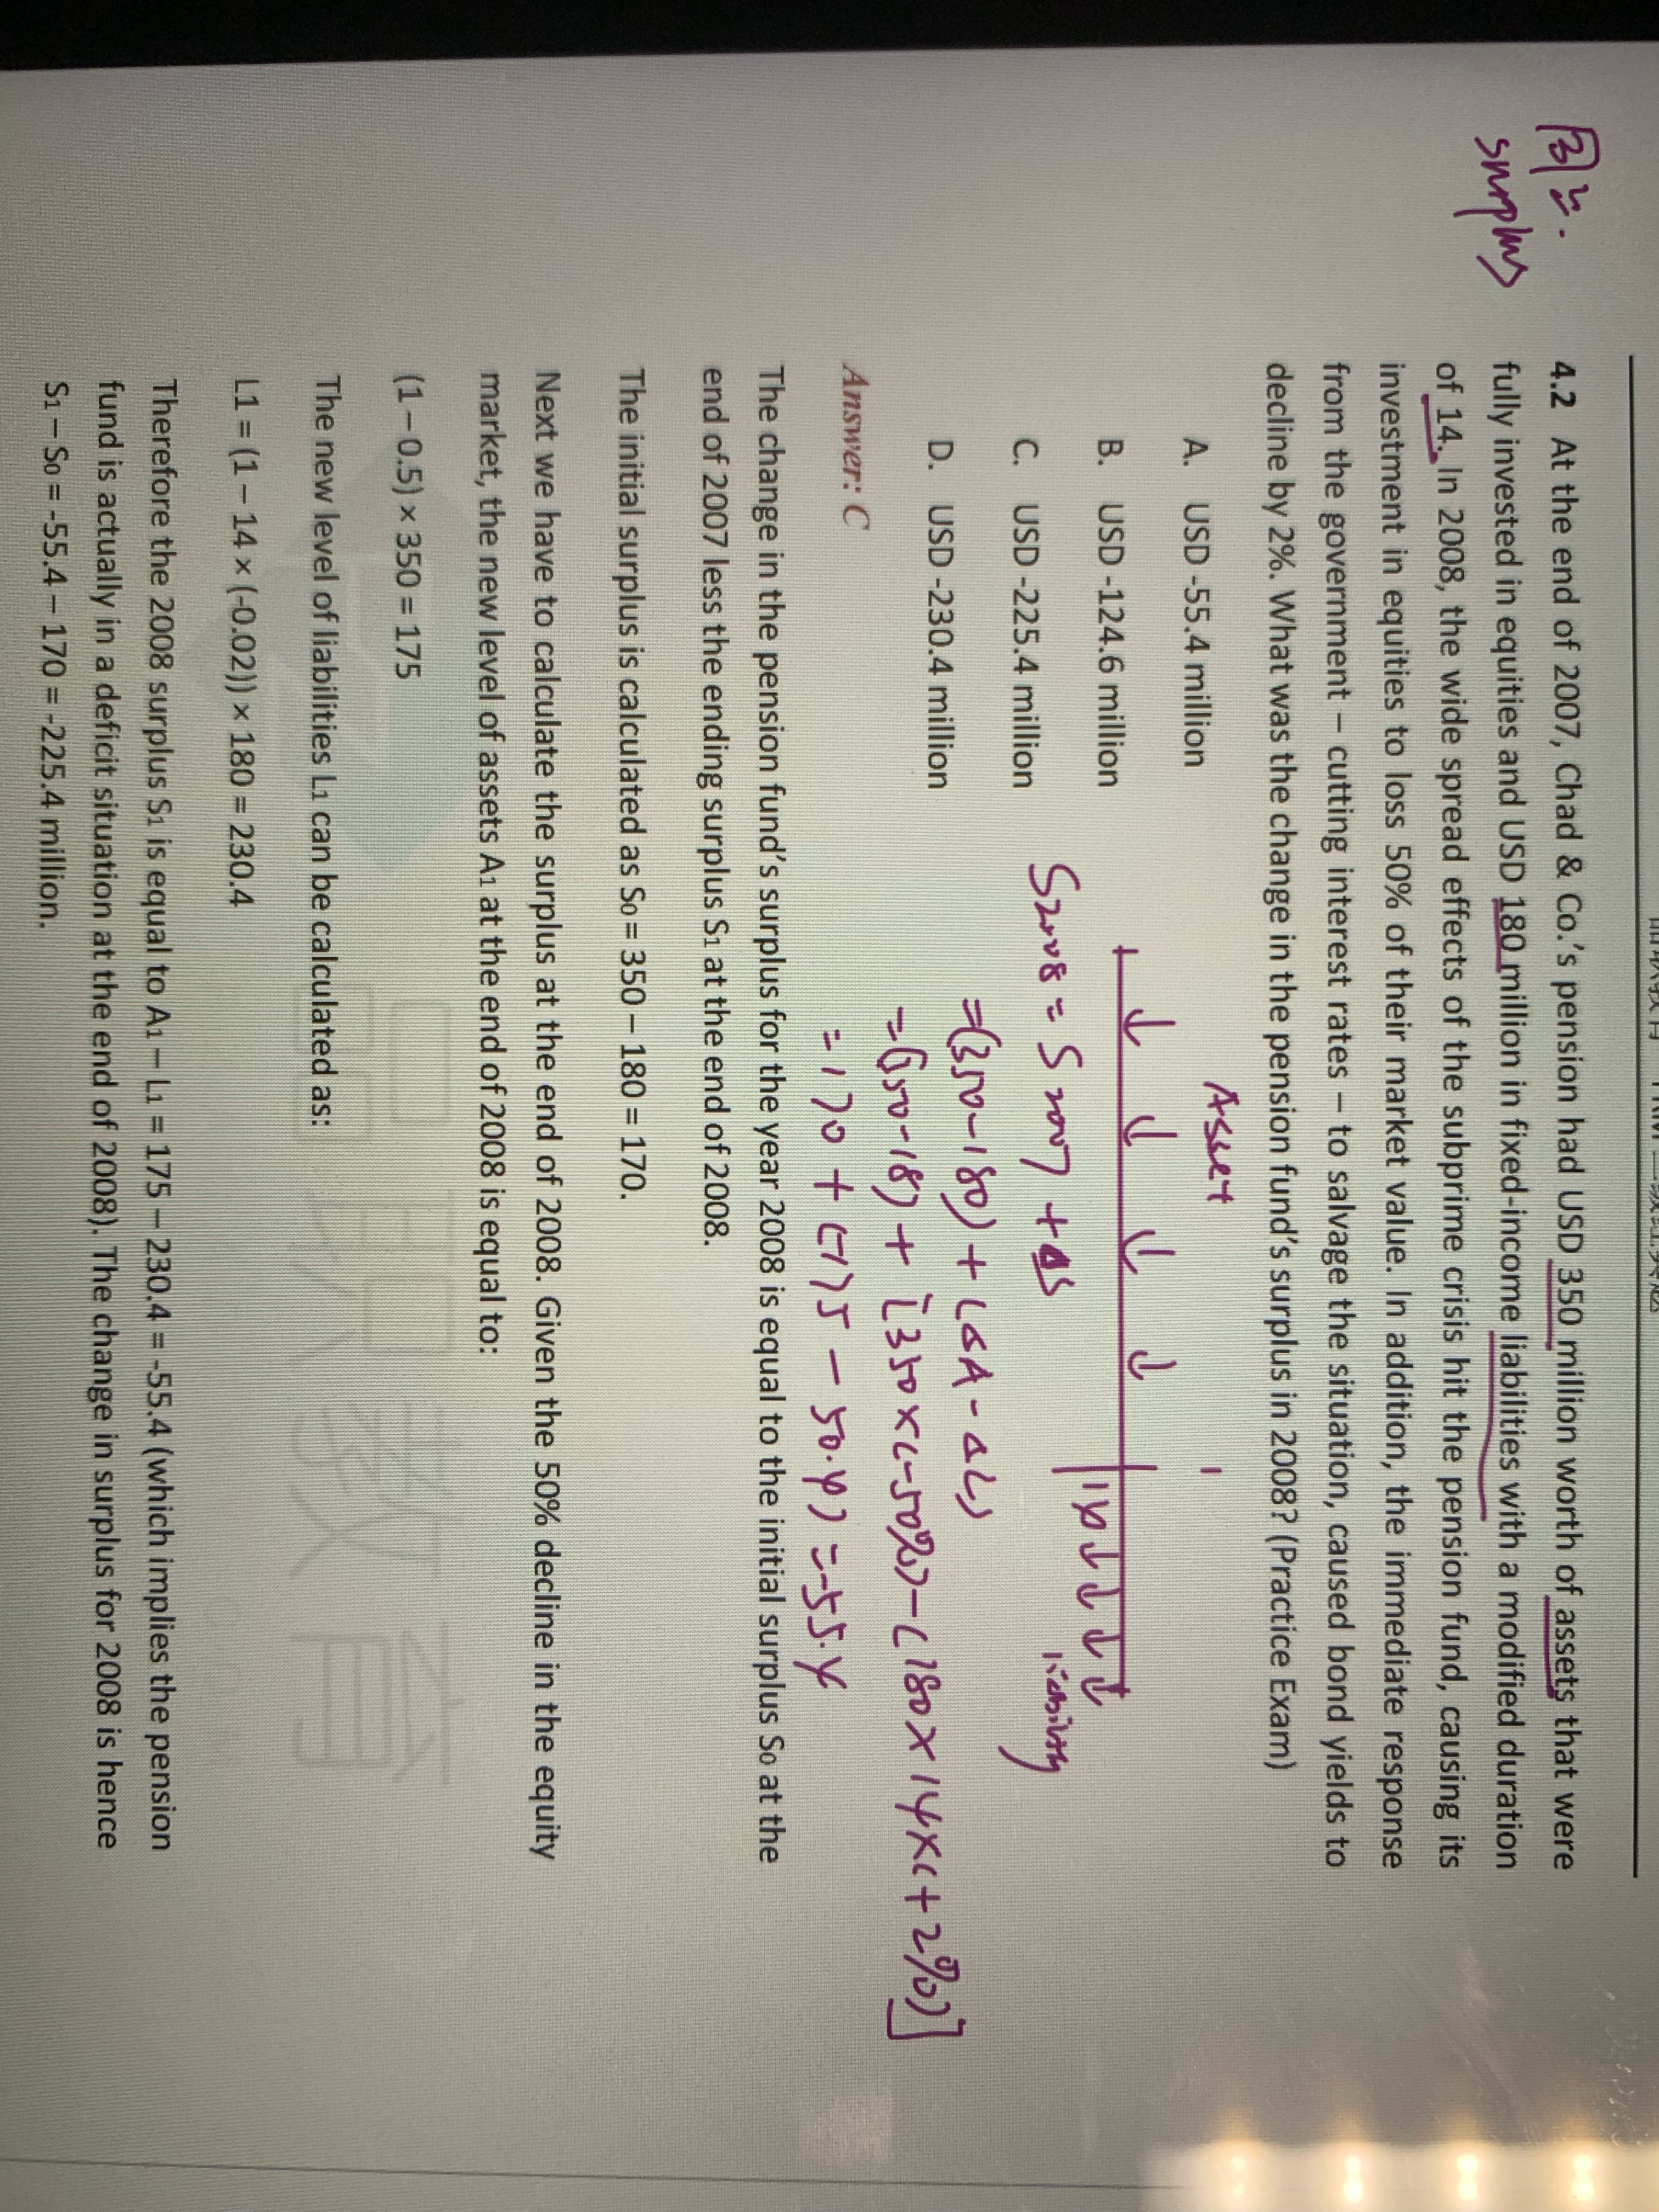 4.2 At the end of 2007, Chad & Co.'s pension had USD 350 million worth of assets that were
fully invested in equities and USD 180 million in fixed-income liabilities with a modified duration
of 14. In 2008, the wide spread effects of the subprime crisis hit the pension fund, causing its
investment in equities to loss 50% of their market value. In addition, the immediate response
from the government – cutting interest rates – to salvage the situation, caused bond yields to
decline by 2%. What was the change in the pension fund's surplus in 2008? (Practice Exam)
surplus
Asset
A. USD -55.4 million
B. USD -124.6 million
C. USD -225.4 million
D. USD -230.4 million
liability
S2008 = S2007 + ΔS
=(350-180) + (ΔA - ΔL)
=(350-18) + [350×(-50%)-(180×14×(+2%)]
= 170 + (-175 - 50.4) = -55.4
Answer: C
The change in the pension fund's surplus for the year 2008 is equal to the initial surplus S0 at the
end of 2007 less the ending surplus S1 at the end of 2008.
The initial surplus is calculated as S0 = 350 – 180 = 170.
Next we have to calculate the surplus at the end of 2008. Given the 50% decline in the equity
market, the new level of assets A1 at the end of 2008 is equal to:
(1 – 0.5) × 350 = 175
The new level of liabilities L1 can be calculated as:
L1 = (1 – 14 × (-0.02)) × 180 = 230.4
Therefore the 2008 surplus S1 is equal to A1 – L1 = 175 – 230.4 = -55.4 (which implies the pension
fund is actually in a deficit situation at the end of 2008). The change in surplus for 2008 is hence
S1 – S0 = -55.4 – 170 = -225.4 million.